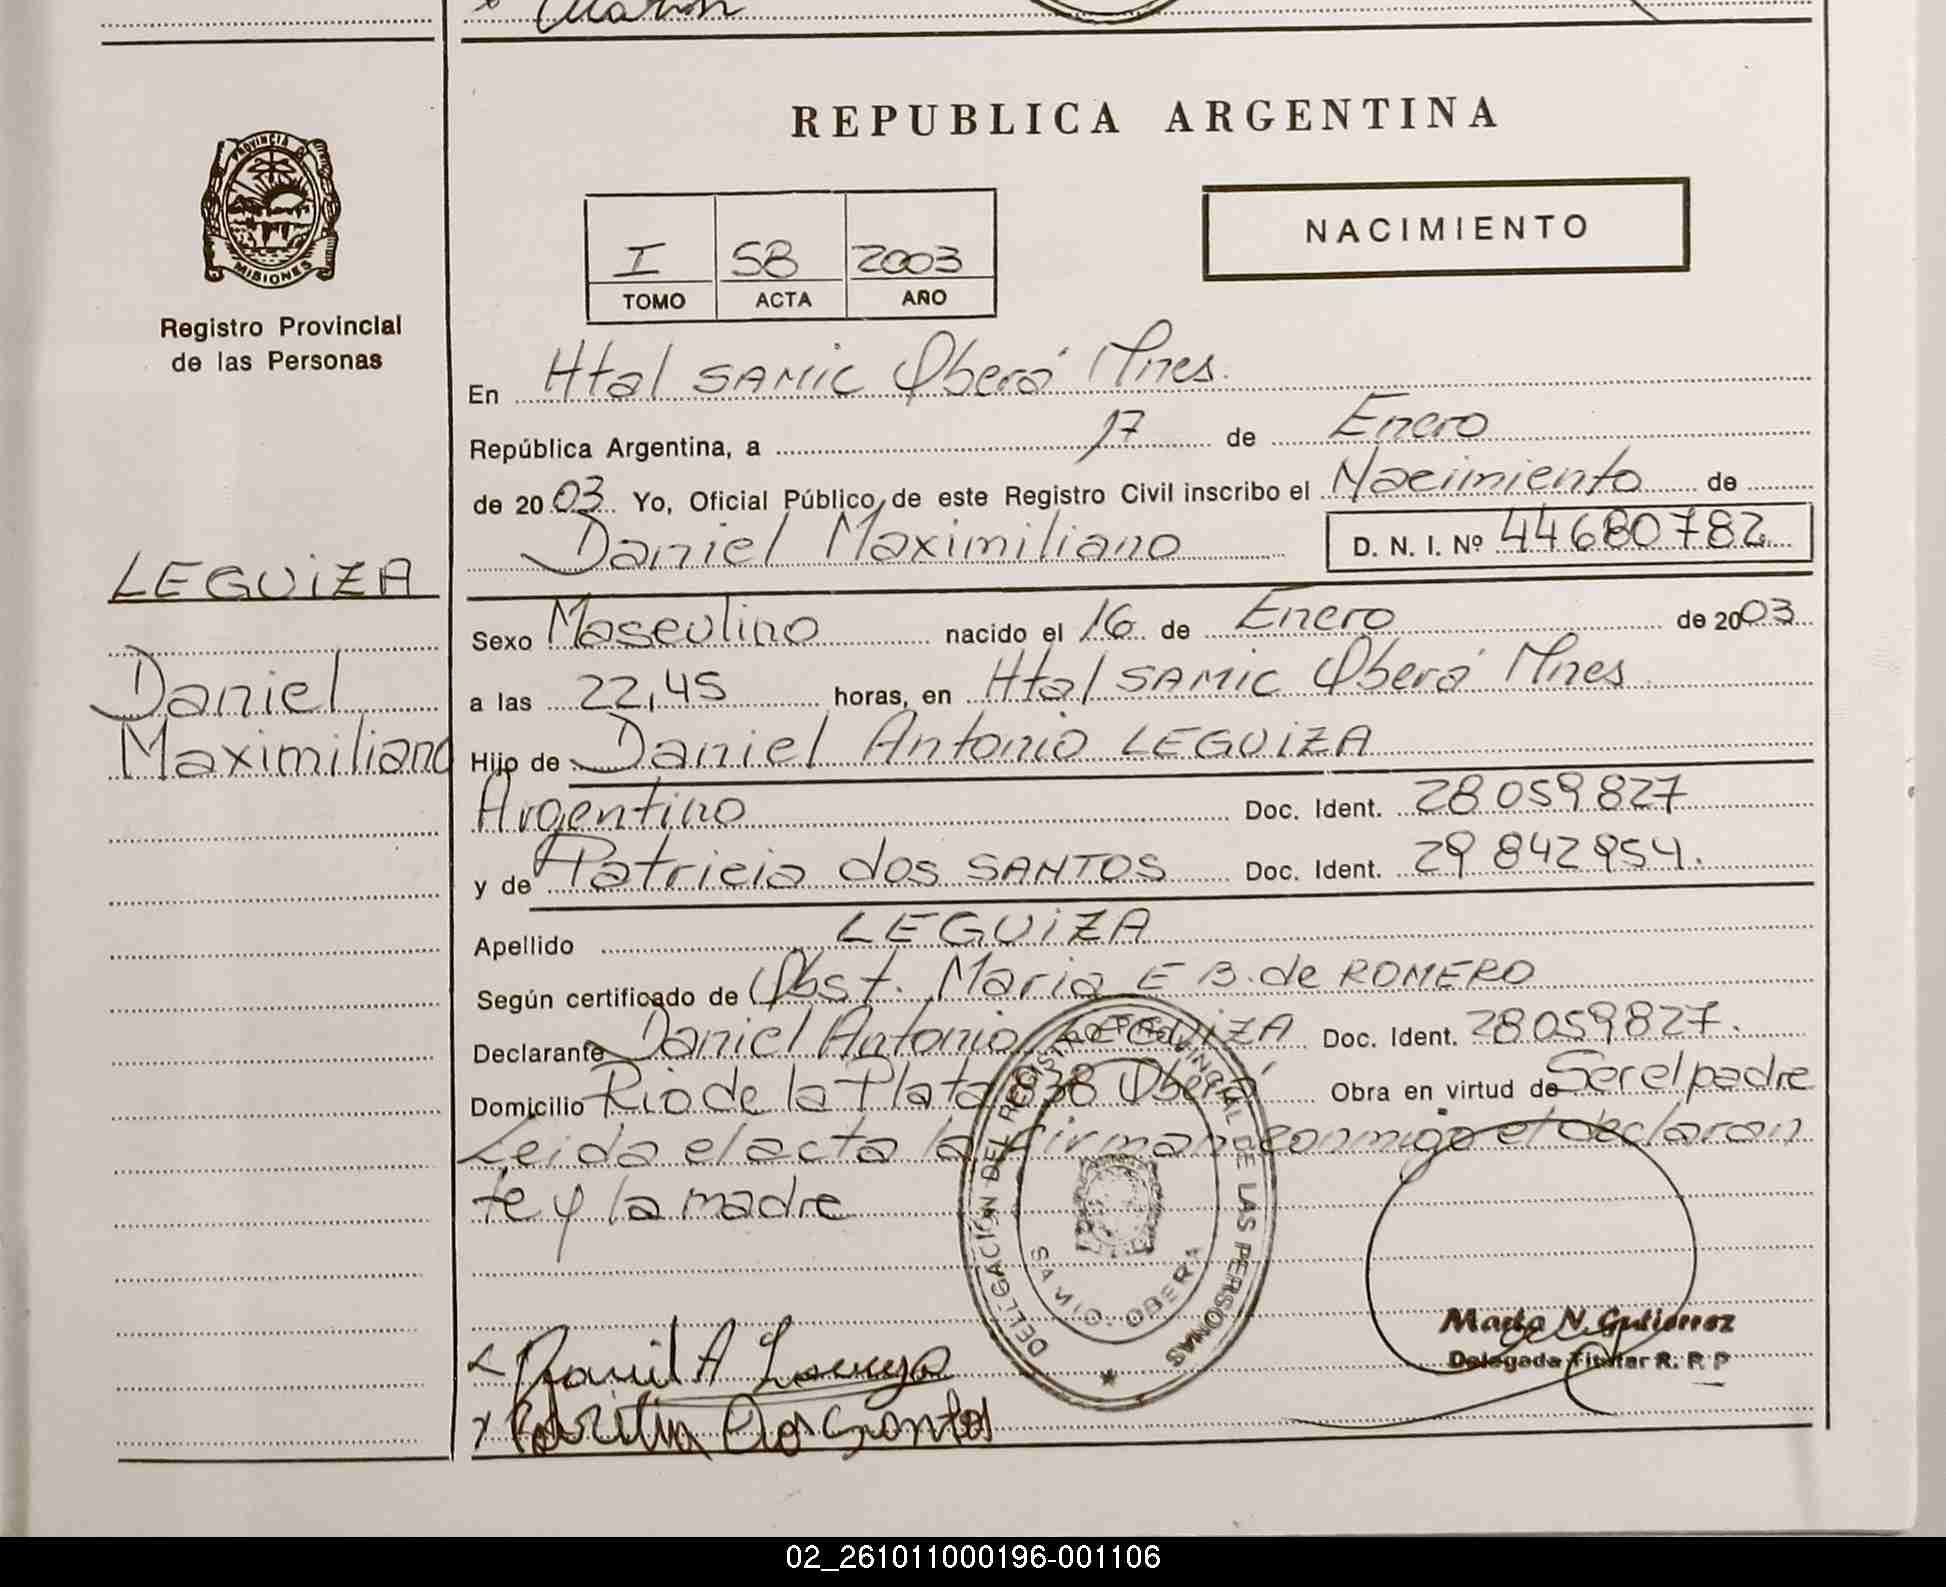 REPUBLICA ARGENTINA
PROVINCIA D
MISIONES
Registro Provincial
de las Personas
I 58 2003
TOMO ACTA AÑO
NACIMIENTO
En Htal SAMIC Oberá Mnes.
República Argentina, a 17 de Enero
de 2003 Yo, Oficial Público, de este Registro Civil inscribo el Nacimiento de
Daniel Maximiliano D. N. I. Nº 44680782
LEGUiZA
Daniel
Maximiliano
Sexo Masculino nacido el 16 de Enero de 2003
a las 22,45 horas, en Htal SAMIC Oberá Mnes
Hijo de Daniel Antonio LEGUiZA
Argentino Doc. Ident. 28 059 827
y de Patricia dos SANTOS Doc. Ident. 29 842 954.
Apellido LEGUiZA
Según certificado de Obst. Maria E B. de ROMERO
Declarante Daniel Antonio LEGUiZA Doc. Ident. 28 059 827.
Domicilio Rio de la Plata 838 Oberá Obra en virtud de Ser el padre
Leida el acta la firman conmigo el declaran
te y la madre
DELEGACIÓN DEL REGISTRO PROVINCIAL DE LAS PERSONAS
SAMIC. OBERA
Daniel A
Dos Santos
Marta N. Gutierrez
Delegada Titular R. P. P
02_261011000196-001106